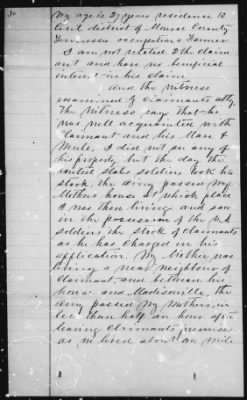 30
My age is 27 years residence 12
Civil district of Monroe County
Tennessee occupation a Farmer
I am not related to the claim
ant and have no beneficial
interest in his claim
and the witness
examined by claimants atty.
The witness, says that he
was well acquainted with
Claimant and his Mare &
Mules, I did not see any of
his property, but the day the
united states soldiers took his
stock, the army passed my
Mothers house at which place
I was then living and saw
in the possession of the U.S
soldiers the stock of claimants
as he has charged in his
application. My Mother was
living a near neighbour of
claimant, and between his
house and Madisonville, the
army passed My Mothers, in
less than half an hour aft-
leaving claimants premise
as we lived about an mile